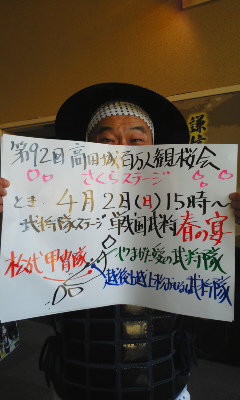 第92回 高田城百万人観桜会
さくらステージ
とき 4月2日(日)15時〜
武将隊ステージ 戦国武将 春の宴
松代甲冑隊
やまがた愛の武将隊
越後上越上杉おもてなし武将隊
謙信